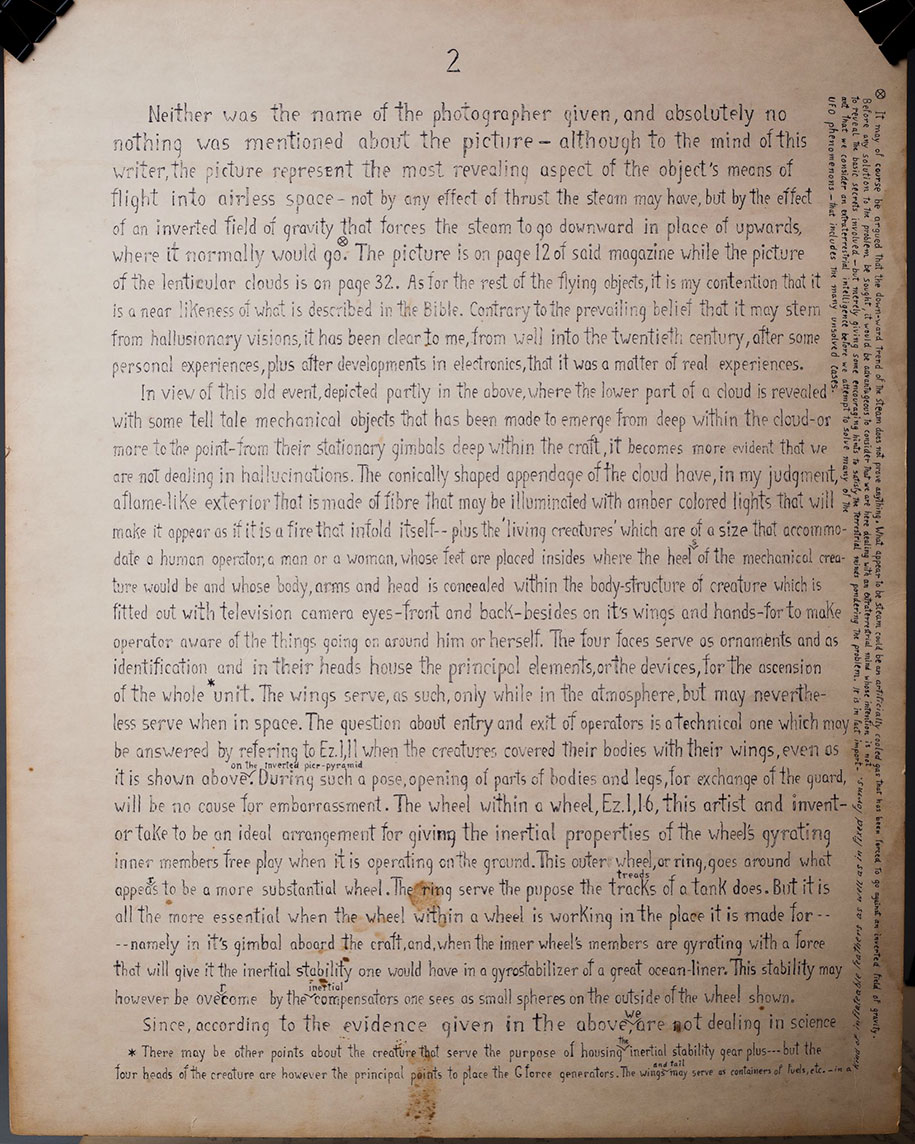 2
Neither was the name of the photographer given, and absolutely no
nothing was mentioned about the picture – although to the mind of this
writer, the picture represent the most revealing aspect of the object's means of
flight into airless space – not by any effect of thrust the steam may have, but by the effect
of an inverted field of gravity that forces the steam to go downward in place of upwards,
where it normally would go.⊗ The picture is on page 12 of said magazine while the picture
of the lenticular clouds is on page 32. As for the rest of the flying objects, it is my contention that it
is a near likeness of what is described in the Bible. Contrary to the prevailing belief that it may stem
from hallusionary visions, it has been clear to me, from well into the twentieth century, after some
personal experiences, plus after developments in electronics, that it was a matter of real experiences.
In view of this old event, depicted partly in the above, where the lower part of a cloud is revealed
with some tell tale mechanical objects that has been made to emerge from deep within the cloud–or
more to the point–from their stationary gimbals deep within the craft, it becomes more evident that we
are not dealing in hallucinations. The conically shaped appendage of the cloud have, in my judgment,
a flame-like exterior that is made of fibre that may be illuminated with amber colored lights that will
make it appear as if it is a fire that infold itself-- plus the 'living creatures' which are of a size that accommo-
date a human operator, a man or a woman, whose feet are placed insides where the heel of the mechanical crea-
ture would be and whose body, arms and head is concealed within the body-structure of creature which is
fitted out with television camera eyes–front and back–besides on it's wings and hands–for to make
operator aware of the things going on around him or herself. The four faces serve as ornaments and as
identification and in their heads house the principal elements, or the devices, for the ascension
of the whole *unit. The wings serve, as such, only while in the atmosphere, but may neverthe-
less serve when in space. The question about entry and exit of operators is a technical one which may
be answered by refering to Ez.1,11 when the creatures covered their bodies with their wings, even as
on the inverted pier-pyramid
it is shown above. During such a pose, opening of parts of bodies and legs, for exchange of the guard,
will be no cause for embarrassment. The wheel within a wheel, Ez.1,16, this artist and invent-
or take to be an ideal arrangement for giving the inertial properties of the wheel's gyrating
inner members free play when it is operating on the ground. This outer wheel, or ring, goes around what
treads
appears to be a more substantial wheel. The ring serve the pupose the tracks of a tank does. But it is
all the more essential when the wheel within a wheel is working in the place it is made for --
--namely in it's gimbal aboard the craft, and, when the inner wheel's members are gyrating with a force
that will give it the inertial stability one would have in a gyrostabilizer of a great ocean-liner. This stability may
inertial
however be overcome by the compensators one sees as small spheres on the outside of the wheel shown.
we
Since, according to the evidence given in the above, are not dealing in science
the
* There may be other points about the creature that serve the purpose of housing inertial stability gear plus---but the
and tail
four heads of the creature are however the principal points to place the G force generators. The wings may serve as containers of fuels, etc. – in a
⊗ It may of course be argued that the down-ward trend of the steam does not prove anything. What appear to be steam could be an artificially cooled gas that has been forced to go against an inverted field of gravity.
Before any solution to the problem be sought, it would be advantageous to consider that we are here dealing with an extraterrestrial mind whose intention is not
to reveal the basic secrets involved – but merely giving some encouraging hints to satisfy the terrestrial minds pondering the problem. It is in fact import-
ant that we consider an extraterrestrial intelligence before we attempt to solve many of the
UFO phenomenons – that includes the many unsolved cases.